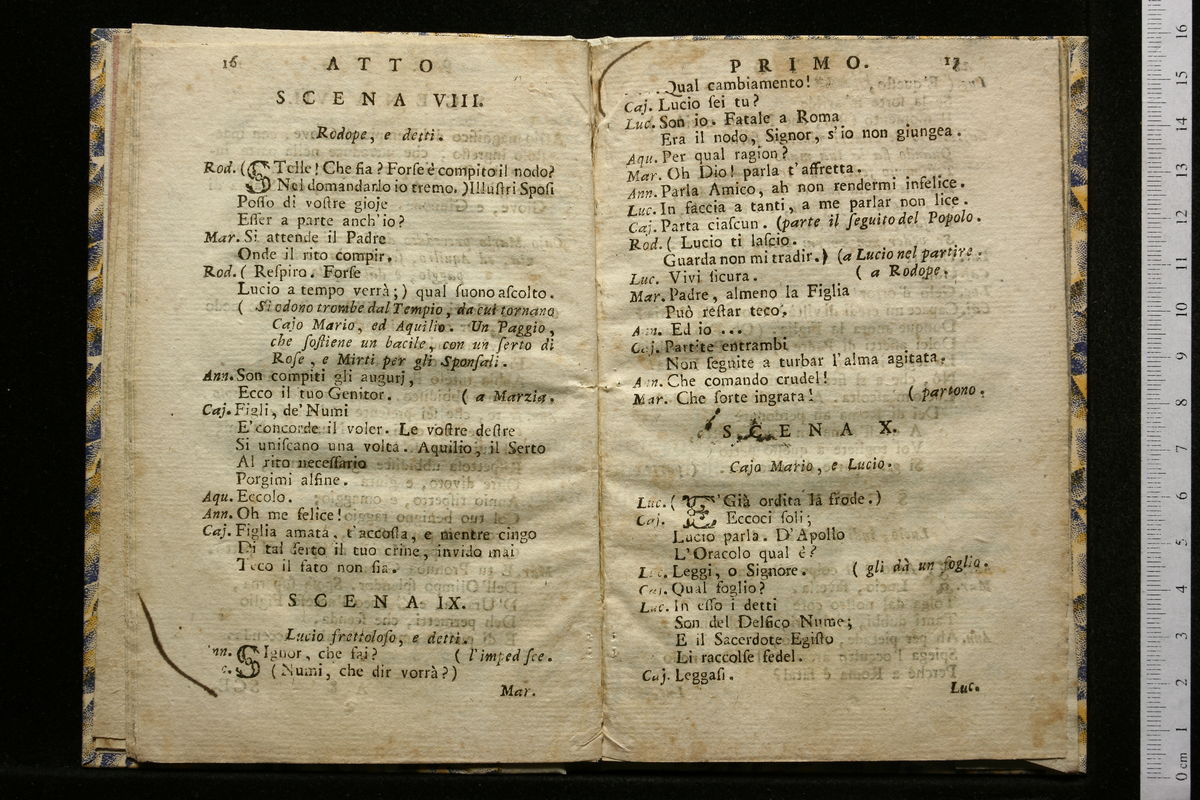 16 ATTO
SCENA VIII.
Rodope, e detti.
Rod. (STelle! Che fia? Forse è compito il nodo?
Nel domandarlo io tremo.) Illustri Sposi
Posso di vostre gioje
Esser a parte anch'io?
Mar. Si attende il Padre
Onde il rito compir.
Rod. ( Respiro. Forse
Lucio a tempo verrà;) qual suono ascolto.
( Si odono trombe dal Tempio, da cui tornano
Cajo Mario, ed Aquilio. Un Paggio,
che sostiene un bacile, con un serto di
Rose, e Mirti per gli Sponsali.
Ann. Son compiti gli augurj,
Ecco il tuo Genitor. ( a Marzia.
Caj. Figli, de' Numi
E' concorde il voler. Le vostre destre
Si uniscano una volta. Aquilio, il Serto
Al rito necessario
Porgimi alfine.
Aqu. Eccolo.
Ann. Oh me felice!
Caj. Figlia amata, t'accosta, e mentre cingo
Di tal serto il tuo crine, invido mai
Teco il fato non sia.
SCENA IX.
Lucio frettoloso, e detti.
SIgnor, che fai? ( l'impedisce.
(Numi, che dir vorrà?)
Mar.
PRIMO. 17
Qual cambiamento!
Caj. Lucio sei tu?
Luc. Son io. Fatale a Roma
Era il nodo, Signor, s'io non giungea.
Aqu. Per qual ragion?
Mar. Oh Dio! parla t'affretta.
Ann. Parla Amico, ah non rendermi infelice.
Luc. In faccia a tanti, a me parlar non lice.
Caj. Parta ciascun. (parte il seguito del Popolo.
Rod. ( Lucio ti lascio.
Guarda non mi tradir.) (a Lucio nel partire.
Luc. Vivi sicura. ( a Rodope.
Mar. Padre, almeno la Figlia
Può restar teco.
Ann. Ed io ...
Caj. Partite entrambi
Non seguite a turbar l'alma agitata.
Ann. Che comando crudel!
Mar. Che sorte ingrata! ( partono.
SCENA X.
Cajo Mario, e Lucio.
Luc. ( E' Già ordita la frode.)
Caj. Eccoci soli;
Lucio parla. D'Apollo
L'Oracolo qual è?
Luc. Leggi, o Signore. ( gli dà un foglio.
Caj. Qual foglio?
Luc. In esso i detti
Son del Delfico Nume;
E il Sacerdote Egisto
Li raccolse fedel.
Caj. Leggasi.
Luc.
0 cm 1 2 3 4 5 6 7 8 9 10 11 12 13 14 15 16